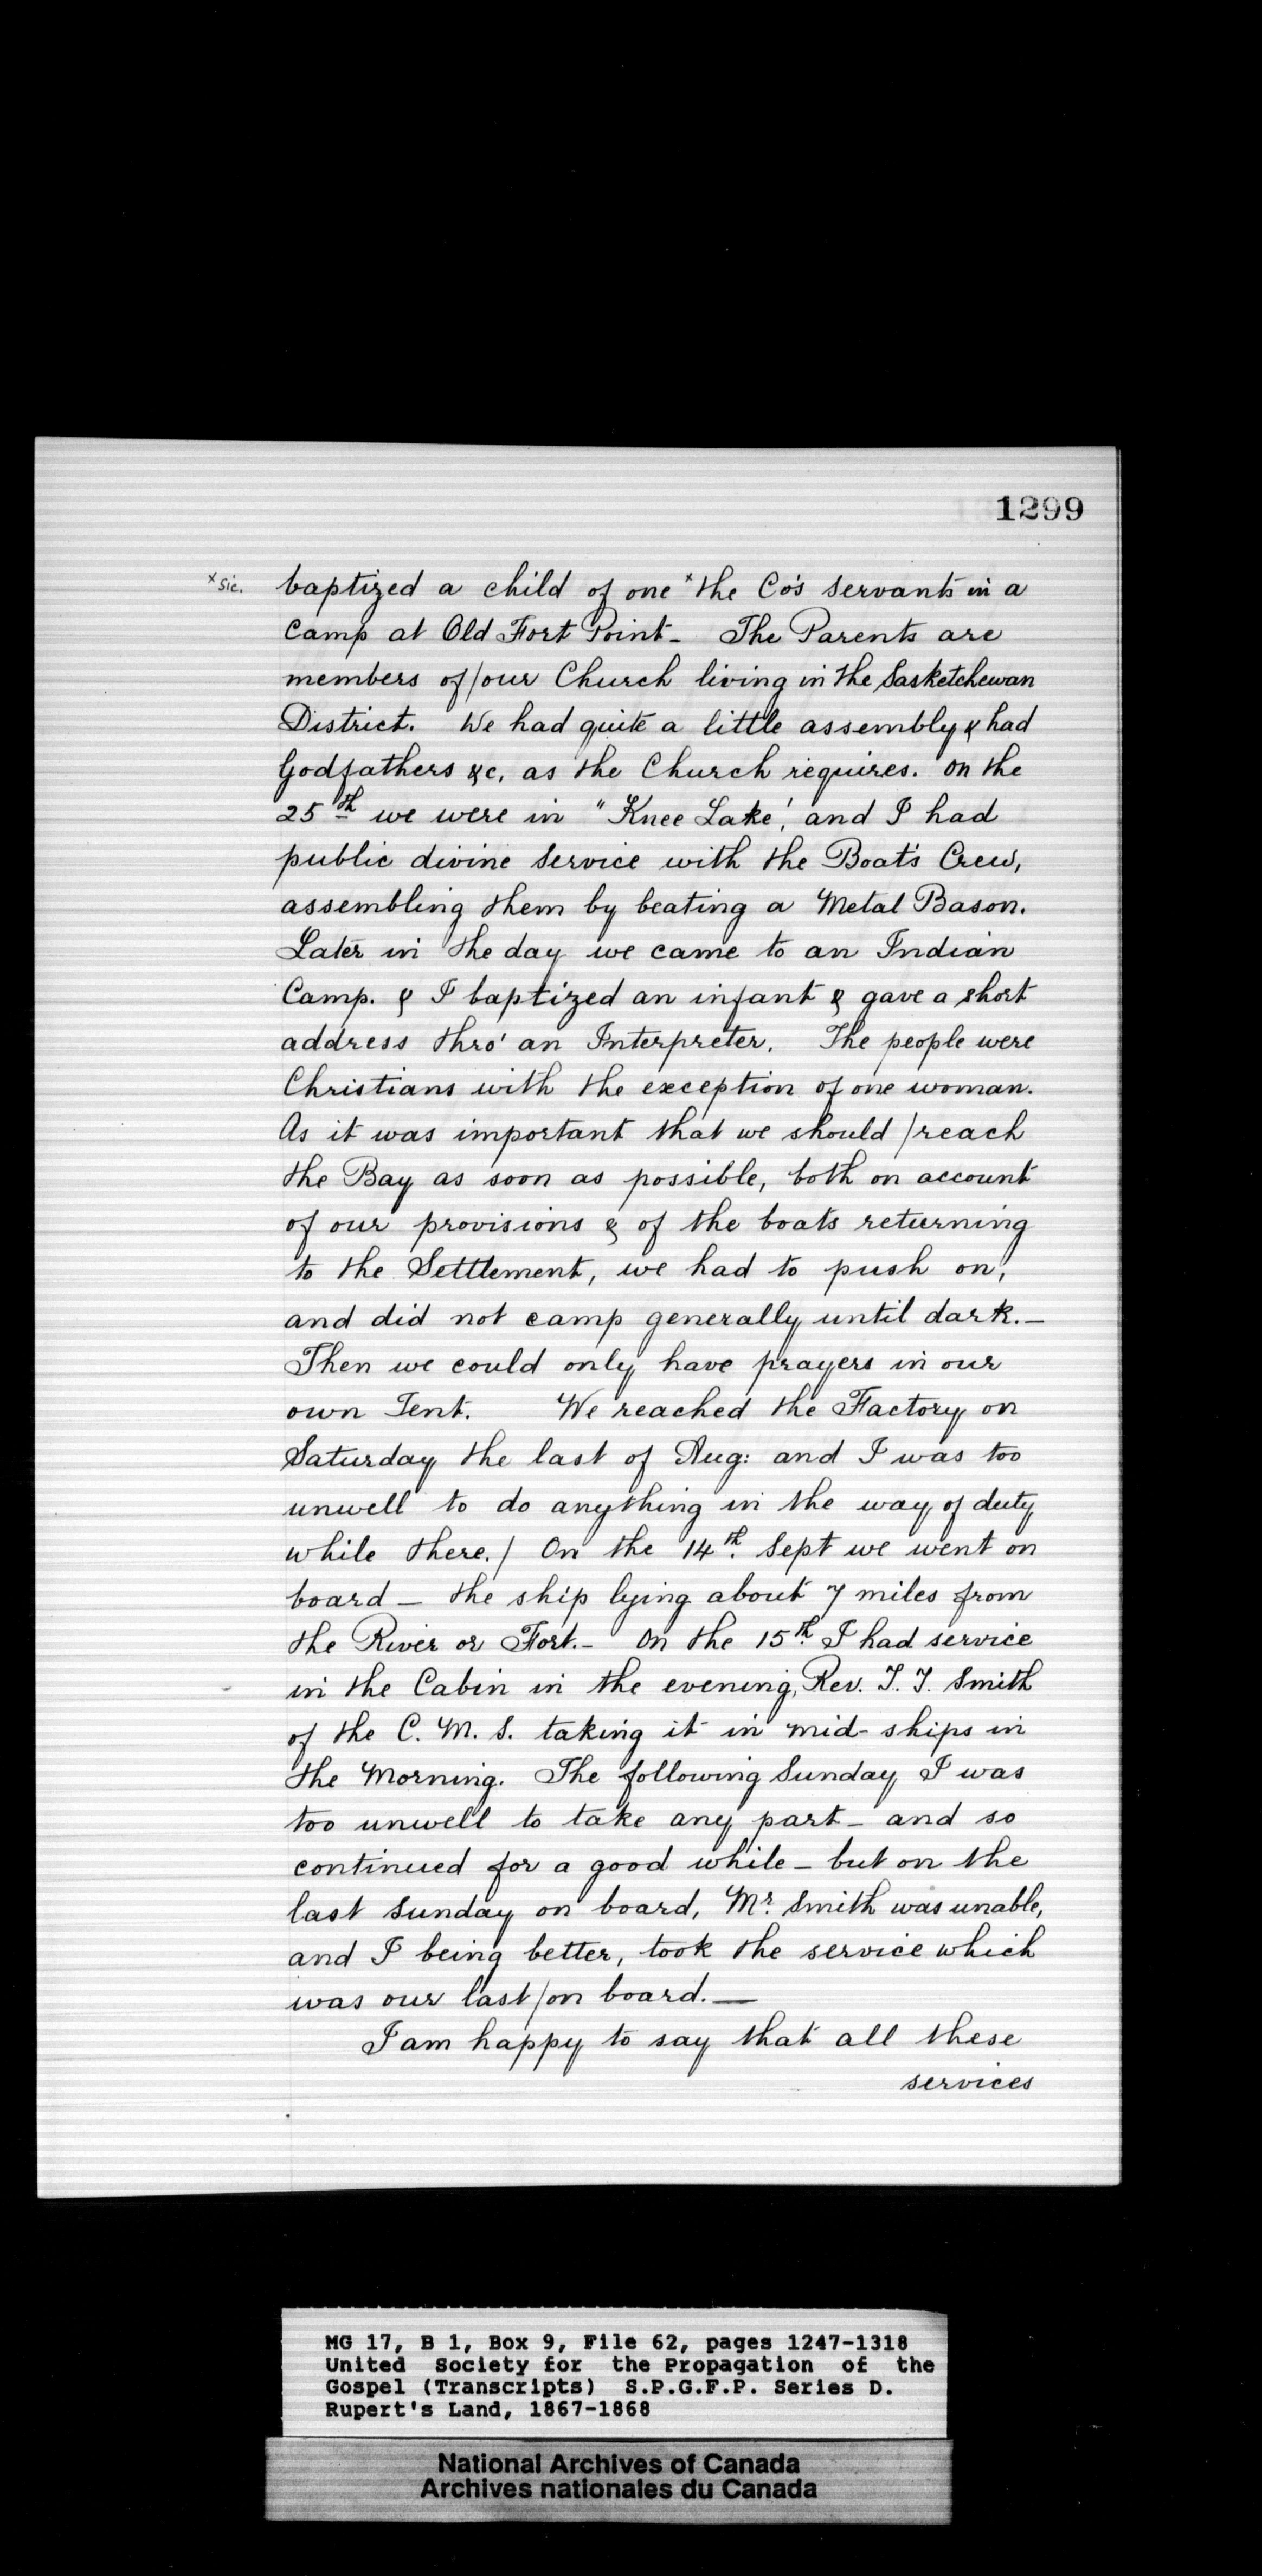 1299
x sic. baptized a child of one x the Co's servants in a
Camp at Old Fort Point - The Parents are
members of/our Church living in the Sasketchewan
District. We had quite a little assembly & had
Godfathers &c, as the Church requires. On the
25th we were in "Knee Lake', and I had
public divine service with the Boat's Crew,
assembling them by beating a Metal Bason.
Later in the day we came to an Indian
Camp. & I baptized an infant & gave a short
address thro' an Interpreter. The people were
Christians with the exception of one woman.
As it was important that we should /reach
the Bay as soon as possible, both on account
of our provisions & of the boats returning
to the Settlement, we had to push on,
and did not camp generally until dark. -
Then we could only have prayers in our
own Tent. We reached the Factory on
Saturday the last of Aug: and I was too
unwell to do anything in the way of duty
while there. / On the 14th. Sept we went on
board - the ship lying about 7 miles from
the River or Fort. - On the 15th. I had service
in the Cabin in the evening, Rev. T. T. Smith
of the C. M. S. taking it in mid-ships in
the Morning. The following Sunday I was
too unwell to take any part - and so
continued for a good while - but on the
last Sunday on board, Mr. Smith was unable,
and I being better, took the service which
was our last /on board. —
I am happy to say that all these
services
MG 17, B 1, Box 9, File 62, pages 1247-1318
United Society for the Propagation of the
Gospel (Transcripts) S.P.G.F.P. Series D.
Rupert's Land, 1867-1868
National Archives of Canada
Archives nationales du Canada